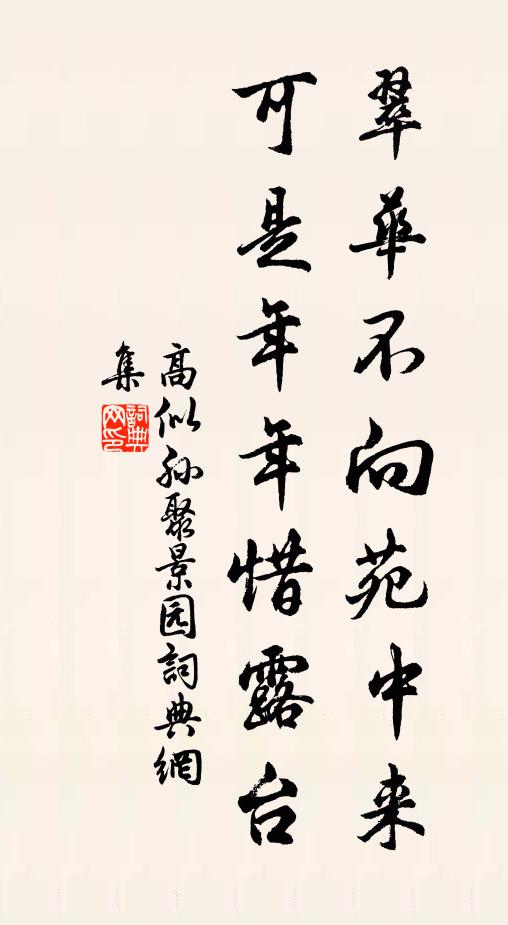 翠華不向苑中来
可是年年惜露台
高似孙聚景园詞典網
集
詞典
网印